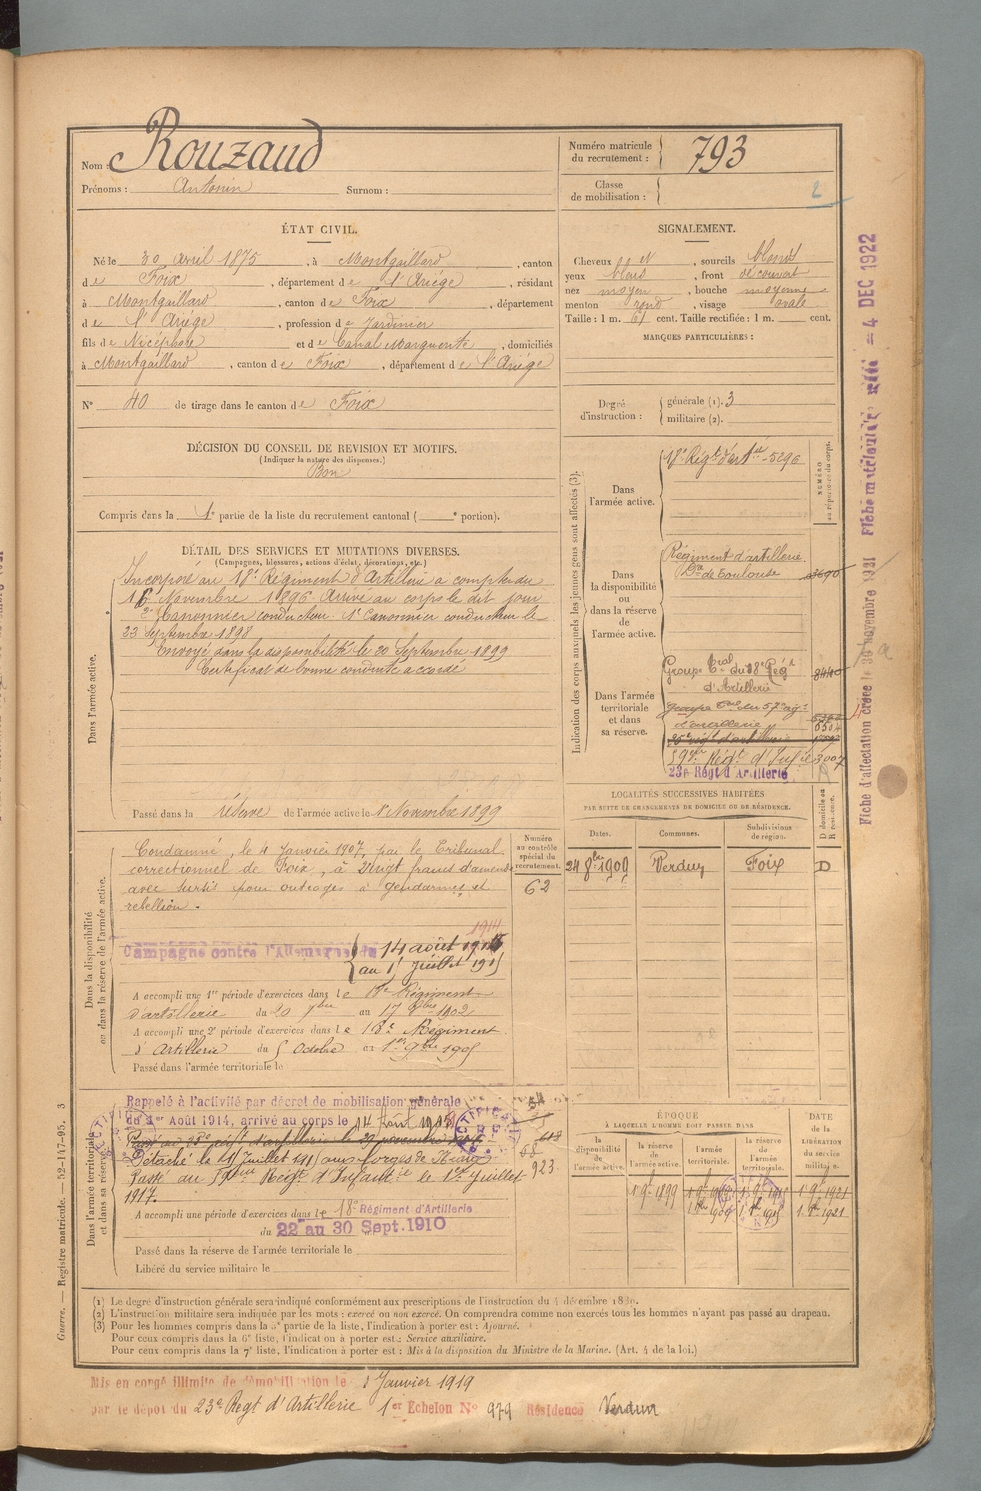 Nom : Rouzaud
Prénoms : Antonin Surnom :
Numéro matricule du recrutement : 793
Classe de mobilisation :
2
ÉTAT CIVIL.
Né le 30 avril 1875, à Montgaillard, canton
de Foix, département de l'Ariége, résidant
à Montgaillard, canton de Foix, département
de l'Ariége, profession de Jardinier
fils de Nicéphore et de Canal Marguerite, domiciliés
à Montgaillard, canton de Foix, département de l'Ariége
N° 40 de tirage dans le canton de Foix
DÉCISION DU CONSEIL DE REVISION ET MOTIFS.
(Indiquer la nature des dispenses.)
Bon
Compris dans la 1e partie de la liste du recrutement cantonal ( e portion).
SIGNALEMENT.
Cheveux et, sourcils blonds
yeux bleus, front découvert
nez moyen, bouche moyenne
menton rond, visage ovale
Taille : 1 m. 61 cent. Taille rectifiée : 1 m. cent.
MARQUES PARTICULIÈRES :
Degré d'instruction : générale (1). 3
militaire (2).
DÉTAIL DES SERVICES ET MUTATIONS DIVERSES.
(Campagnes, blessures, actions d'éclat, décorations, etc.)
Dans l'armée active.
Incorporé au 18e Régiment d'Artillerie a compter du
16 Novembre 1896. Arrivé au corps le dit jour
2e Canonnier conducteur. 1e Canonnier conducteur le
23 Septembre 1898
Envoyé dans la disponibilité le 20 Septembre 1899
Certificat de bonne conduite accordé
Passé dans la réserve de l'armée active le 1er Novembre 1899
Indication des corps auxquels les jeunes gens sont affectés (3).
NUMÉRO au répertoire du corps.
Dans l'armée active.
18e Régt d'artie 5296
Dans la disponibilité ou dans la réserve de l'armée active.
Régiment d'artillerie
de Toulouse 3690
Dans l'armée territoriale et dans sa réserve.
Groupe Tral du 18e Régt
d'Artillerie 8440
Groupe du 57e
d'artillerie 6504
59me Régt d'Infie 3007
23e Régt d'Artillerie
LOCALITÉS SUCCESSIVES HABITÉES
PAR SUITE DE CHANGEMENTS DE DOMICILE OU DE RÉSIDENCE.
Dates. Communes. Subdivisions de région. D domicile ou R résidence.
24 8bre 1909 Verdun Foix D
Dans la disponibilité ou dans la réserve de l'armée active.
Numéro au contrôle spécial du recrutement.
62
Condamné, le 4 Janvier 1907, par le Tribunal
correctionnel de Foix, à Vingt francs d'amende
avec sursis pour outrages à gendarmes et
rebellion.
1914
Campagne contre l'Allemagne du 14 août 1915
au 15 Juillet 1915
A accompli une 1re période d'exercices dans le 18e Régiment
d'artillerie du 20 7bre au 17 8bre 1902
A accompli une 2e période d'exercices dans le 18e Régiment
d'Artillerie du 5 Octobre au 1er 9bre 1905
Passé dans l'armée territoriale le
Dans l'armée territoriale et dans sa réserve.
Rappelé à l'activité par décret de mobilisation générale
du 1er Août 1914, arrivé au corps le 14 Août 1915
Passé au 23e régt d'artillerie le 27 novembre
Détaché le 15 Juillet 1915 aux forges de
Passé au 59ème Régt d'Infanterie le 1er Juillet
1917.
54
618
68
923
RECTIFICATIF
A accompli une période d'exercices dans le 18e Régiment d'Artillerie
du 22 au 30 Sept. 1910
Passé dans la réserve de l'armée territoriale le
Libéré du service militaire le
ÉPOQUE
À LAQUELLE L'HOMME DOIT PASSER DANS
la disponibilité de l'armée active. la réserve de l'armée active. l'armée territoriale. la réserve de l'armée territoriale.
DATE de la LIBÉRATION du service militaire.
1 9e 1899 1 9e 1921
1 8bre 1921
(1) Le degré d'instruction générale sera indiqué conformément aux prescriptions de l'instruction du 4 décembre 1889.
(2) L'instruction militaire sera indiquée par les mots : exercé ou non exercé. On comprendra comme non exercés tous les hommes n'ayant pas passé au drapeau.
(3) Pour les hommes compris dans la 5e partie de la liste, l'indication à porter est : Ajourné.
Pour ceux compris dans la 6e liste, l'indication à porter est : Service auxiliaire.
Pour ceux compris dans la 7e liste, l'indication à porter est : Mis à la disposition du Ministre de la Marine. (Art. 4 de la loi.)
Mis en congé illimité de démobilisation le Janvier 1919
par le dépôt du 23e Régt d'Artillerie 1er Échelon N° 979 Résidence Verdun
Guerre. — Registre matricule. — 52-147-95. 3
Fiche d'affectation créée le 30 novembre 1921 Fiche matricule = 4 DEC 1922